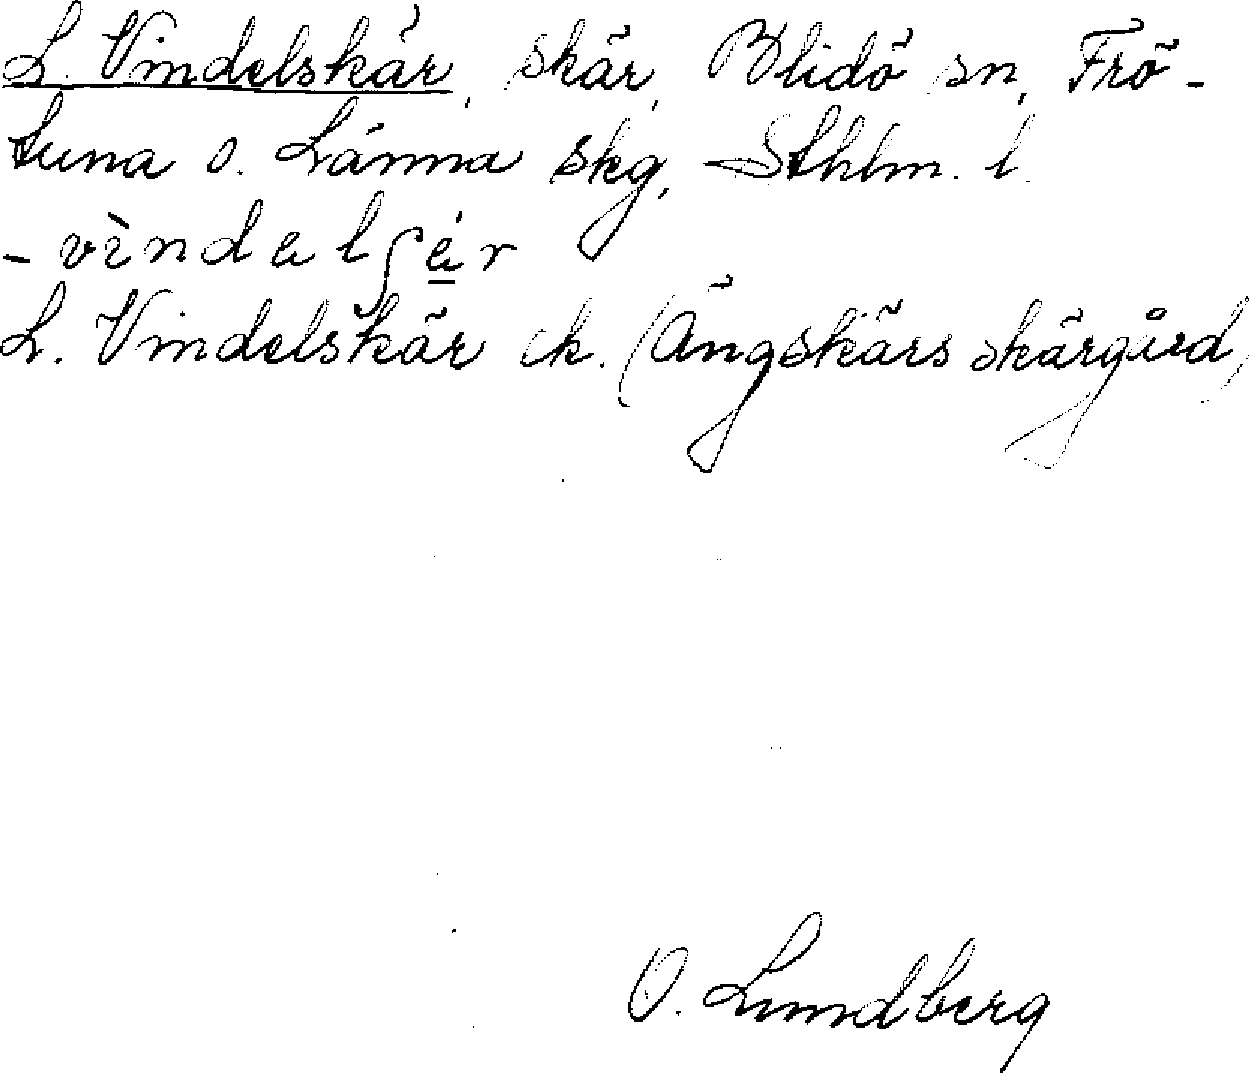 L. Vindelskär, skär, Blidö sn, Frö-
tuna o. Länna skg, Sthlm. l.
- vìndalʃá̱r
L. Vindelskär ek. (Ängskärs skärgård)
O. Lundberg